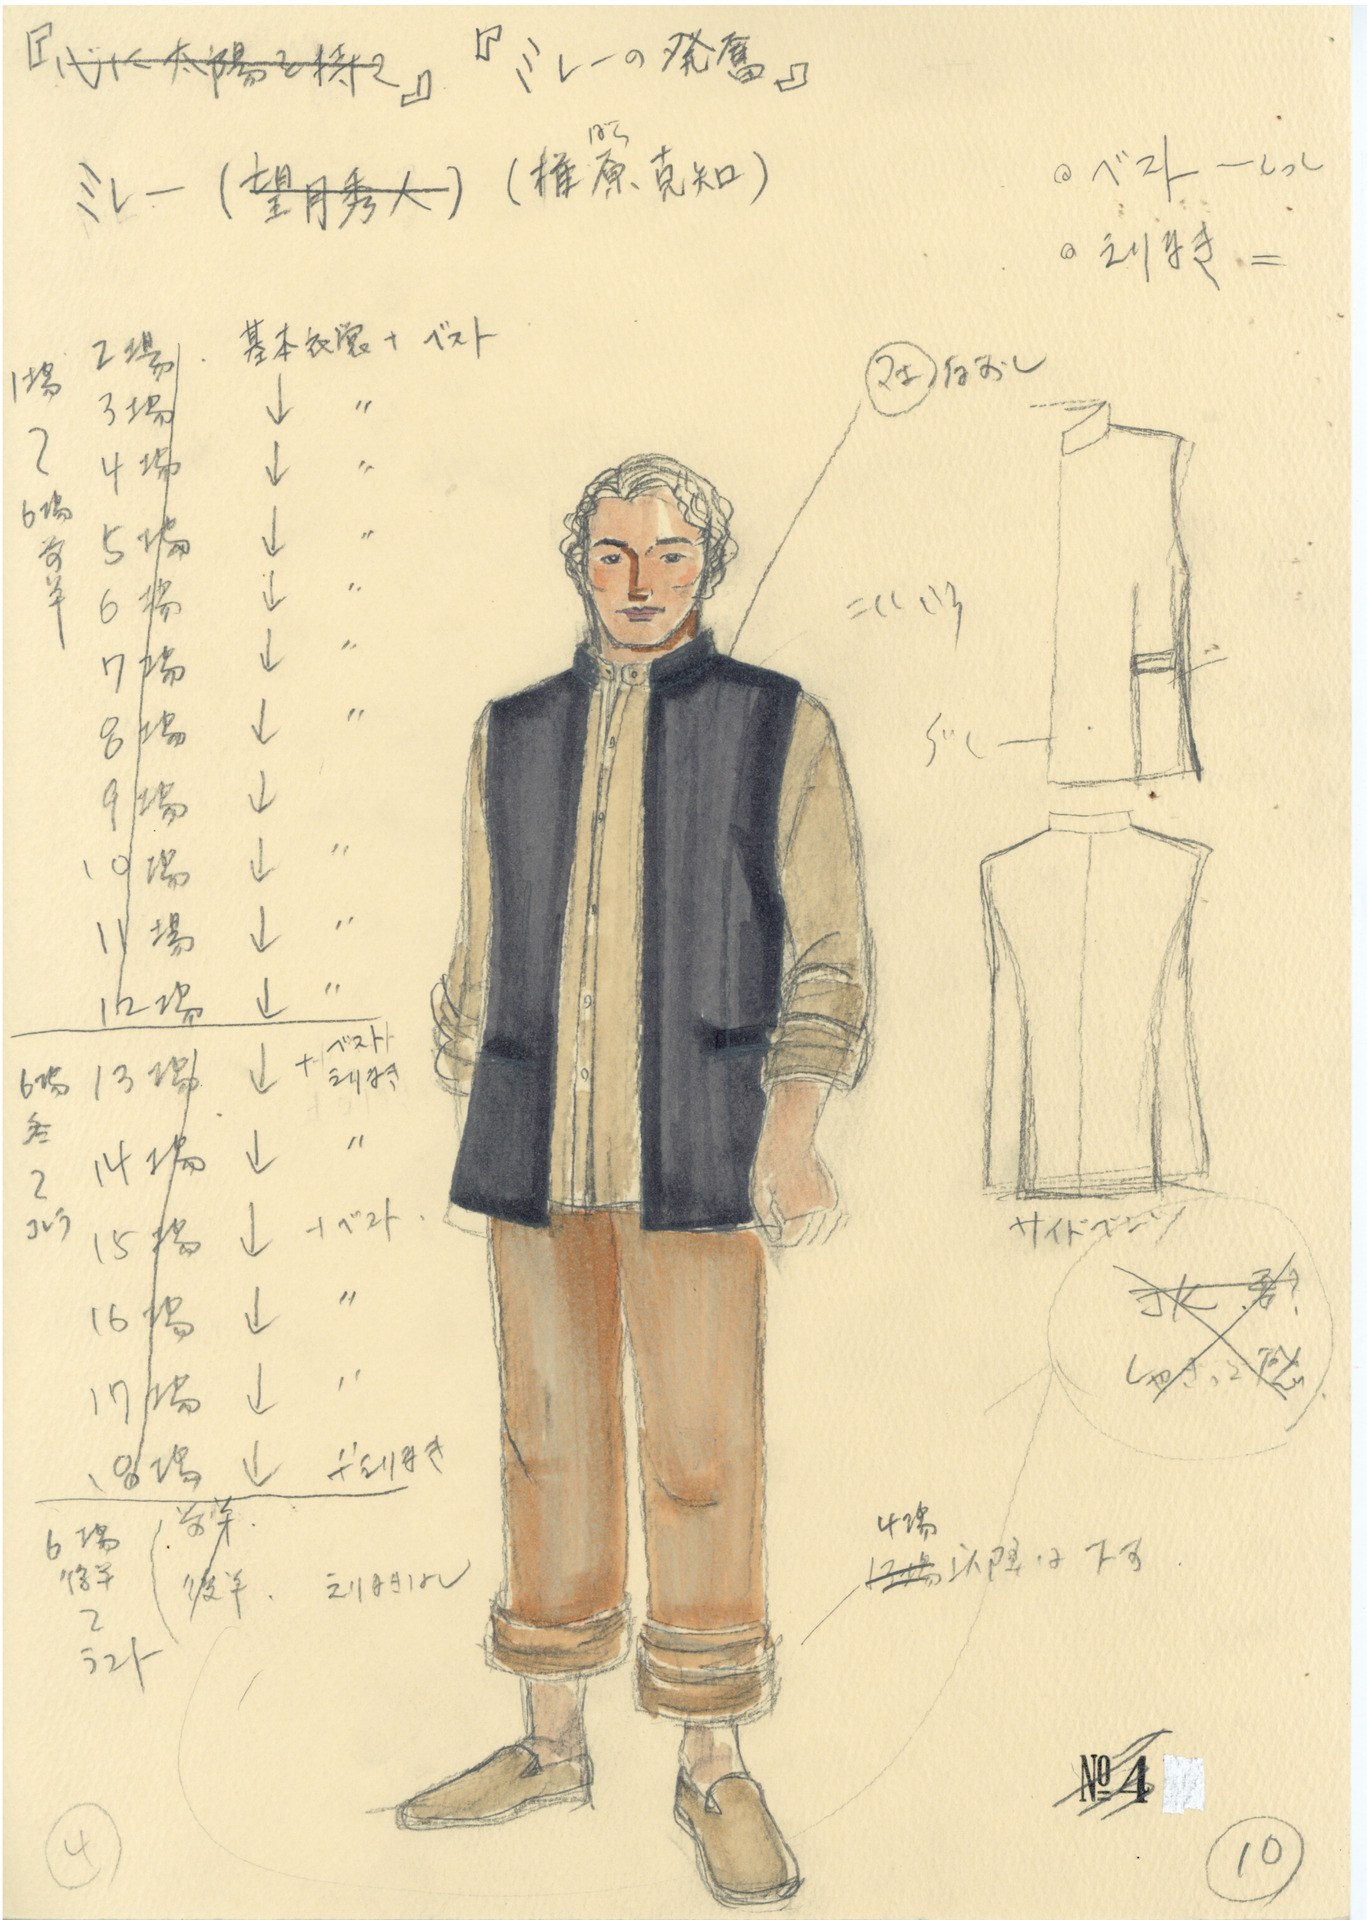 『心に太陽を持て』 『ミレーの発奮』
ばら
ミレー (望月秀人) (椎原克知)
。ベスト 一
。えりまき 二
2場 . 基本衣裳 + ベスト
1場
3場 ↓ 〃
〜
4場 ↓ 〃
6場
前半
5場 ↓ 〃
6場 ↓ 〃
7場 ↓ 〃
8場 ↓ 〃
9場 ↓
10場 ↓ 〃
11場 ↓ 〃
12場 ↓ 〃
6場
13場 ↓ + ベスト
えりまき
〜
14場 ↓ 〃
15場 ↓ + ベスト .
16場 ↓ 〃
17場 ↓ 〃
18場 ↓ + えりまき
前半.
後半. えりまきなし
6場
後半
〜
ラスト
なおし
こいいろ
サイドベンツ
4場
12場以降は下す.
№ 4
4
10